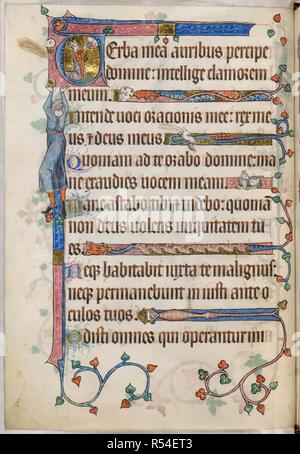 Verba mea auribus percipe
domine: intellige clamorem
meum.
Intende voci oracionis mee: rex me
us & deus meus
Quoniam ad te orabo domine: ma
ne exaudies vocem meam.
Mane astabo tibi & videbo: quoniā
non deus volens iniquitatem tu
es.
Neqʒ habitabit iuxta te malignus:
neqʒ permanebunt iniusti ante o
culos tuos.
Odisti omnes qui operantur ini
alamy
Image ID: R54ET3
www.alamy.com